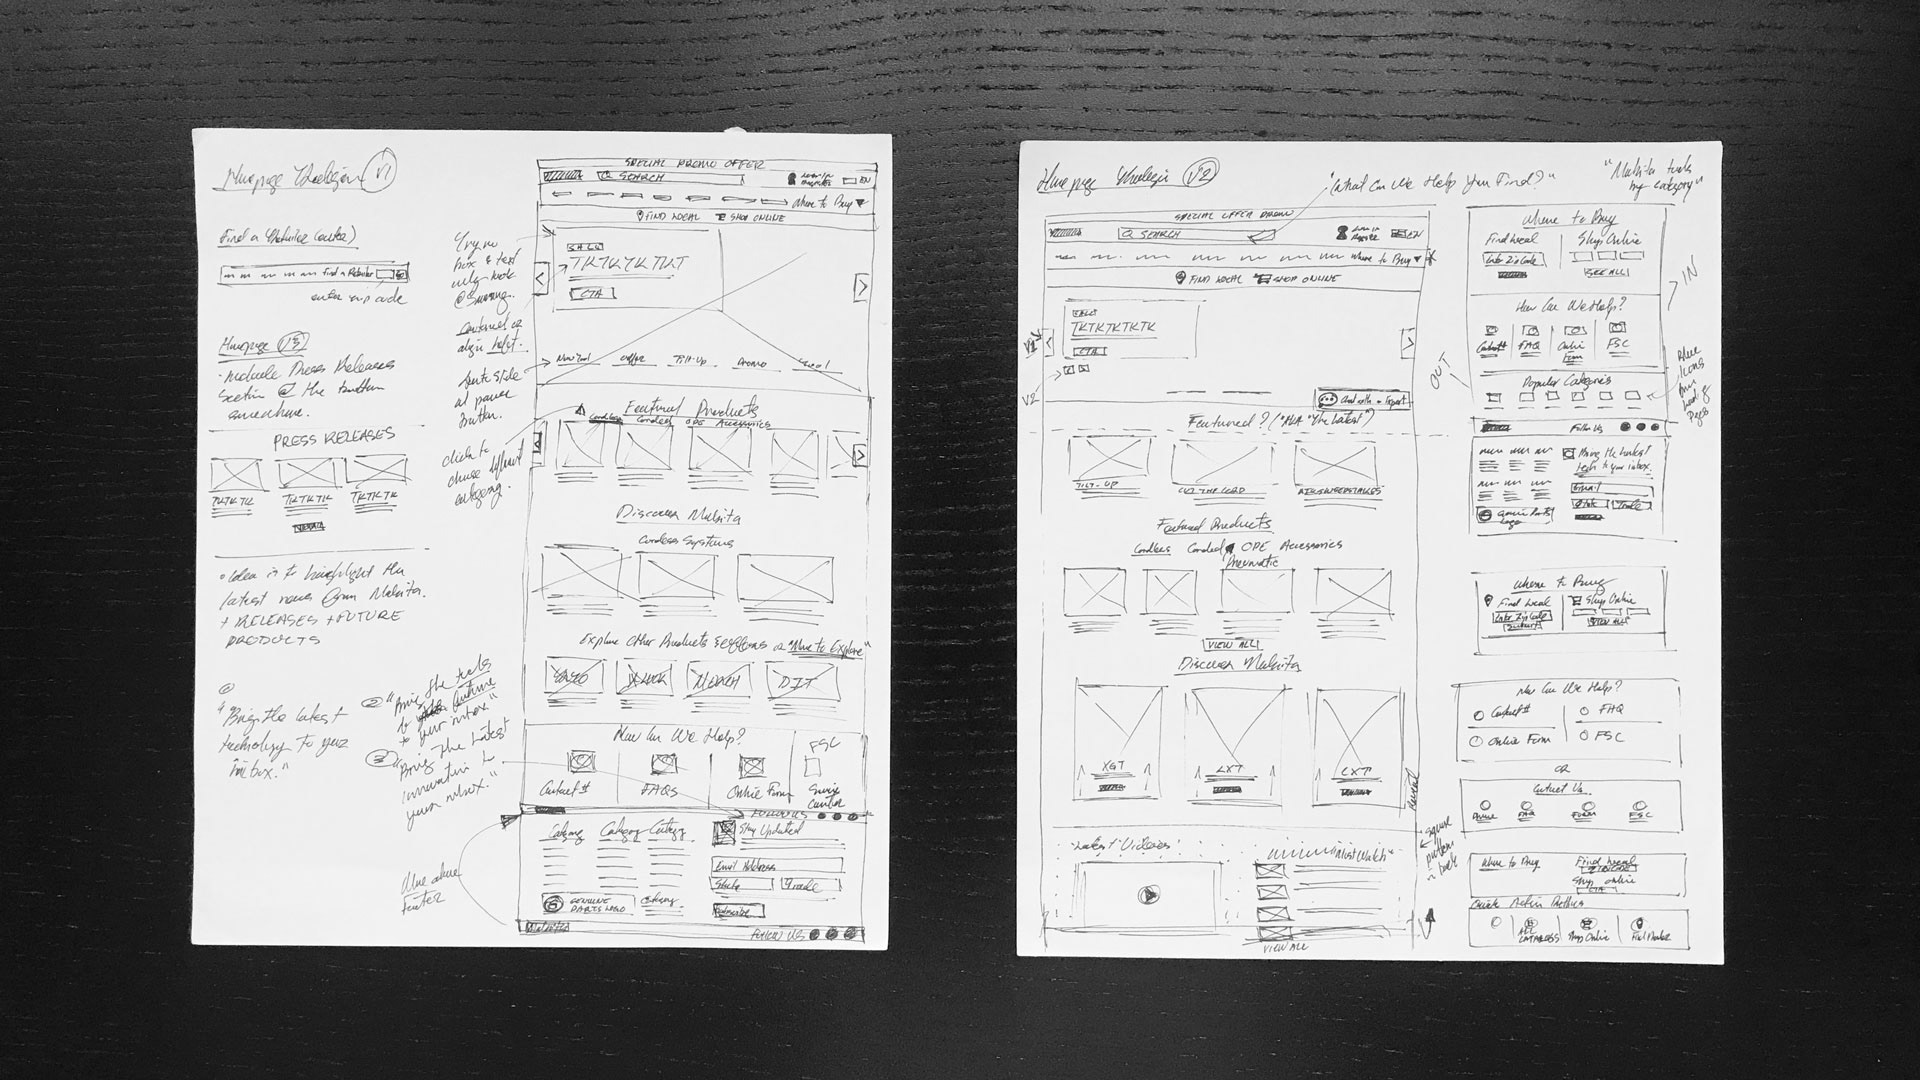 Homepage Redesign V1
Find a Retailer (outer)
Find a Retailer
enter zip code
Homepage V3
• include Press Releases
section @ the bottom
somewhere.
PRESS RELEASES
TKTKTK TKTKTK TKTKTK
• Idea is to highlight the
latest news from Makita.
+ RELEASES + FUTURE
PRODUCTS
"Brings the latest
technology to your
inbox."
② "Bring the tools
future
to your inbox."
③ "Bring the latest
innovation to
your inbox."
Try no
box & text
only look
align left.
Auto slide
at power
button.
click to
choose different
category.
Move above
footer
SPECIAL PROMO OFFER
SEARCH
EN
Where to Buy
FIND LOCAL SHOP ONLINE
TKTKTKTKT
CTA
New Tool Offer Tilt-Up Promo Tool
Featured Products
Cordless Corded OPE Accessories
Discover Makita
Cordless Systems
Explore Other Products & Options or "More to Explore"
MERCH
How Can We Help?
FSC
Contact # FAQS Online Form Service Center
FOLLOW US
Category Category Category
Stay Updated
Email Address
State Trade
GENUINE
PARTS LOGO
Category
Subscribe
FOLLOW US
Homepage Redesign V2
"What Can We Help You Find?"
"Makita tools
by category"
SPECIAL OFFER PROMO
SEARCH
EN
Where to Buy
FIND LOCAL SHOP ONLINE
V1
TKTKTKTKTK
CTA
V2
Chat with an Expert
Featured? (AKA "The Latest")
TILT-UP CUT THE CORD
Featured Products
Cordless Corded OPE Accessories
Pneumatic
VIEW ALL
Discover Makita
XGT LXT CXT
Latest Videos
VIEW ALL
square
Where to Buy
Find Local Shop Online
Enter Zip Code
SEE ALL
IN
How Can We Help?
Contact # FAQ Online Form FSC
OUT
Popular Categories
Follow Us
Bring the latest
tech to your inbox.
Email
State Trade
Genuine Parts
Logo
Where to Buy
Find Local Shop Online
Enter Zip Code
Submit VIEW ALL
How Can We Help?
Contact # FAQ
Online Form FSC
OR
Contact Us
Phone FAQ Form FSC
Where to Buy Find Local
Shop Online
CTA
Quick Action Buttons
Shop Online